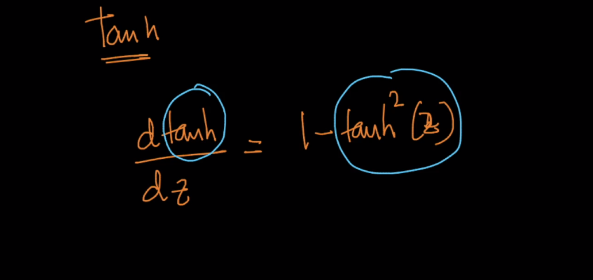 tanh
d tanh / dz = 1 - tanh² (z)